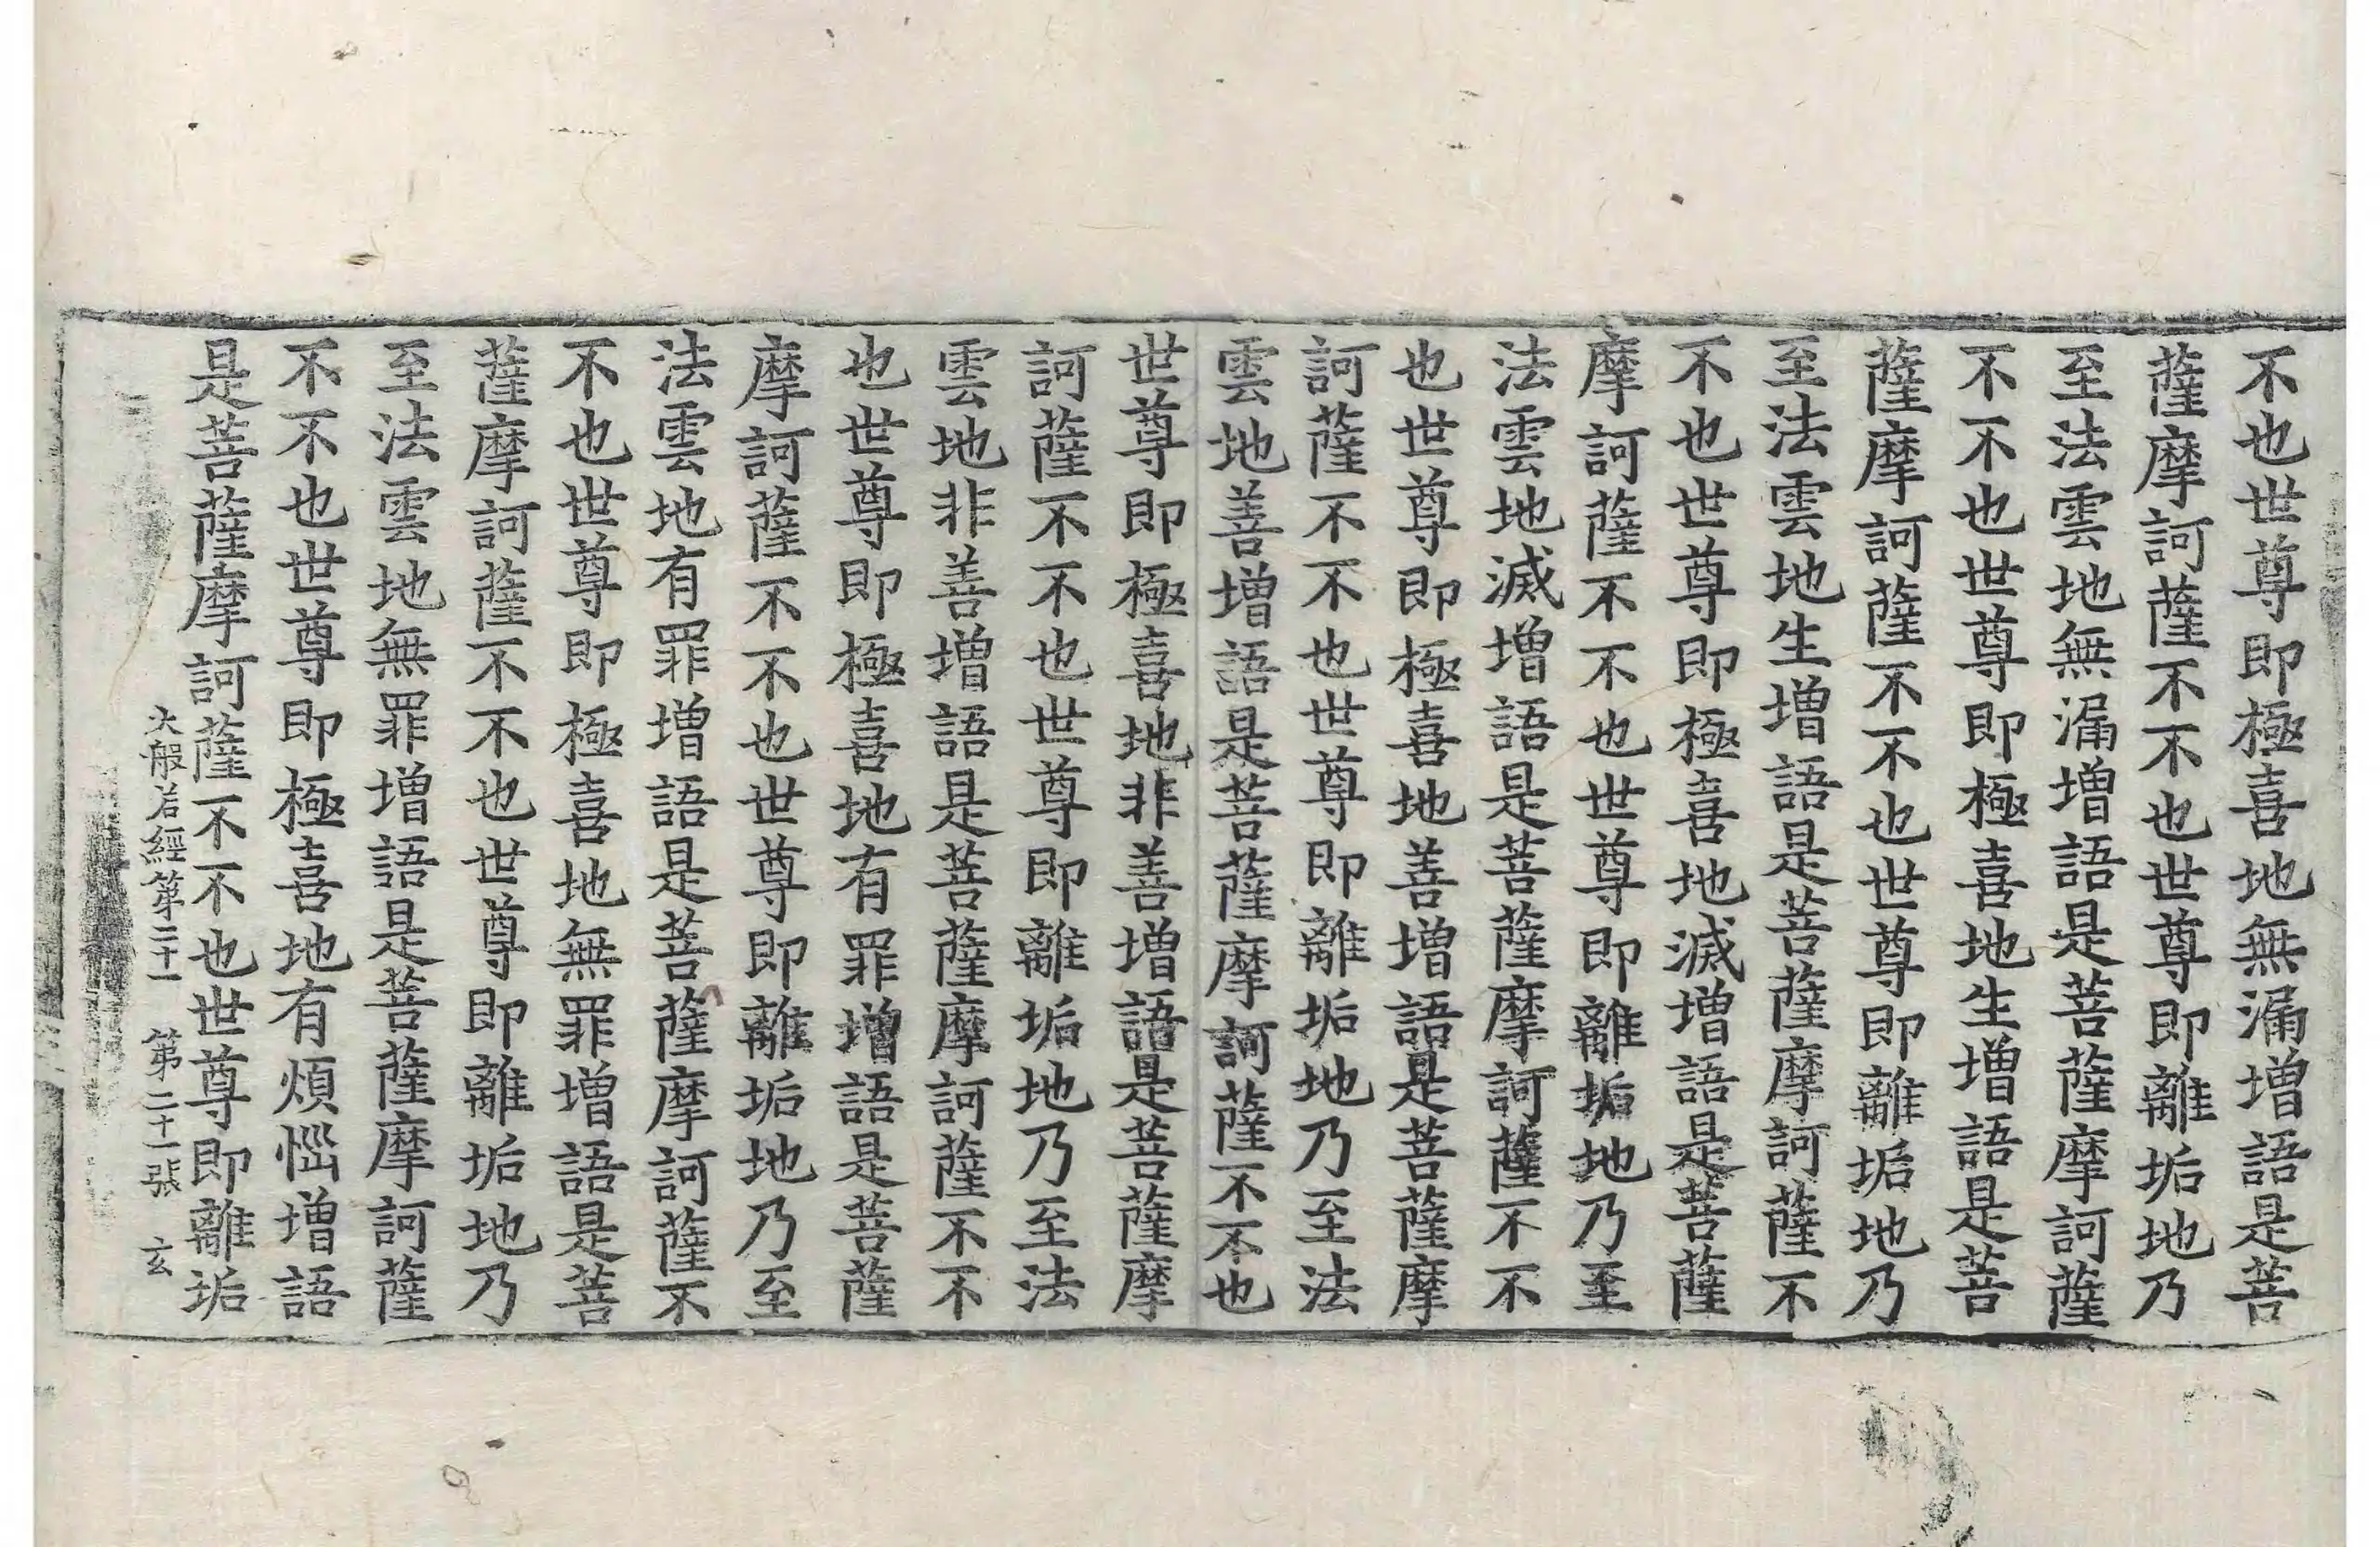 不也世尊即極喜地無漏增語是菩
薩摩訶薩不不也世尊即離垢地乃
至法雲地無漏增語是菩薩摩訶薩
不不也世尊即極喜地生增語是菩
薩摩訶薩不不也世尊即離垢地乃
至法雲地生增語是菩薩摩訶薩不
不也世尊即極喜地滅增語是菩薩
摩訶薩不不也世尊即離垢地乃至
法雲地滅增語是菩薩摩訶薩不不
也世尊即極喜地善增語是菩薩摩
訶薩不不也世尊即離垢地乃至法
雲地善增語是菩薩摩訶薩不不也
世尊即極喜地非善增語是菩薩摩
訶薩不不也世尊即離垢地乃至法
雲地非善增語是菩薩摩訶薩不不
也世尊即極喜地有罪增語是菩薩
摩訶薩不不也世尊即離垢地乃至
法雲地有罪增語是菩薩摩訶薩不
不也世尊即極喜地無罪增語是菩
薩摩訶薩不不也世尊即離垢地乃
至法雲地無罪增語是菩薩摩訶薩
不不也世尊即極喜地有煩惱增語
是菩薩摩訶薩不不也世尊即離垢
大般若經第二十一 第二十一張 玄